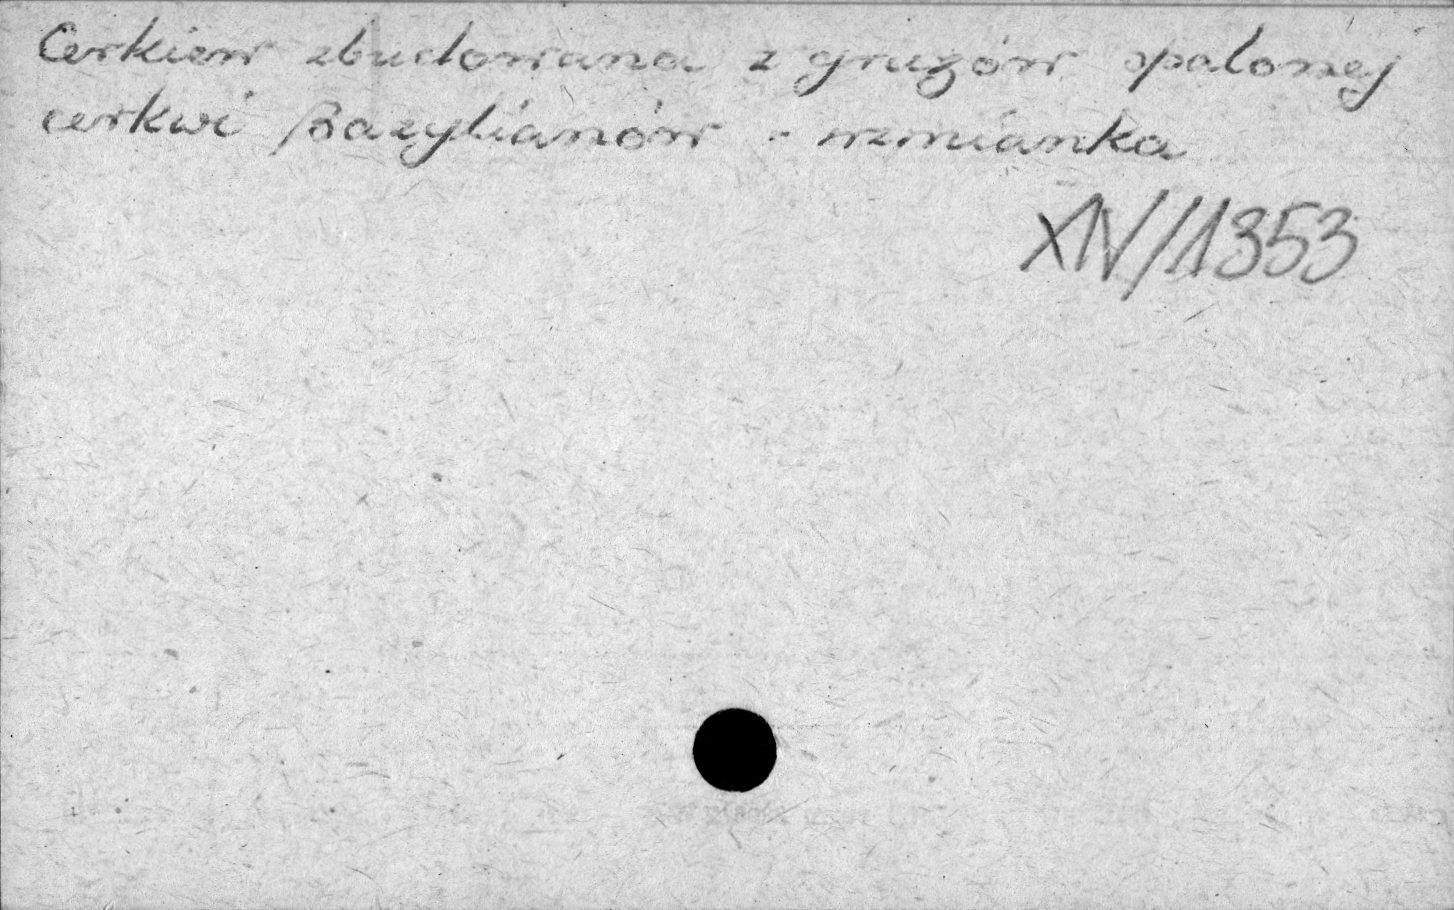 Cerkiew zbudowana z gruzów spalonej
cerkwi Bazylianów - wzmianka
XIV/1353